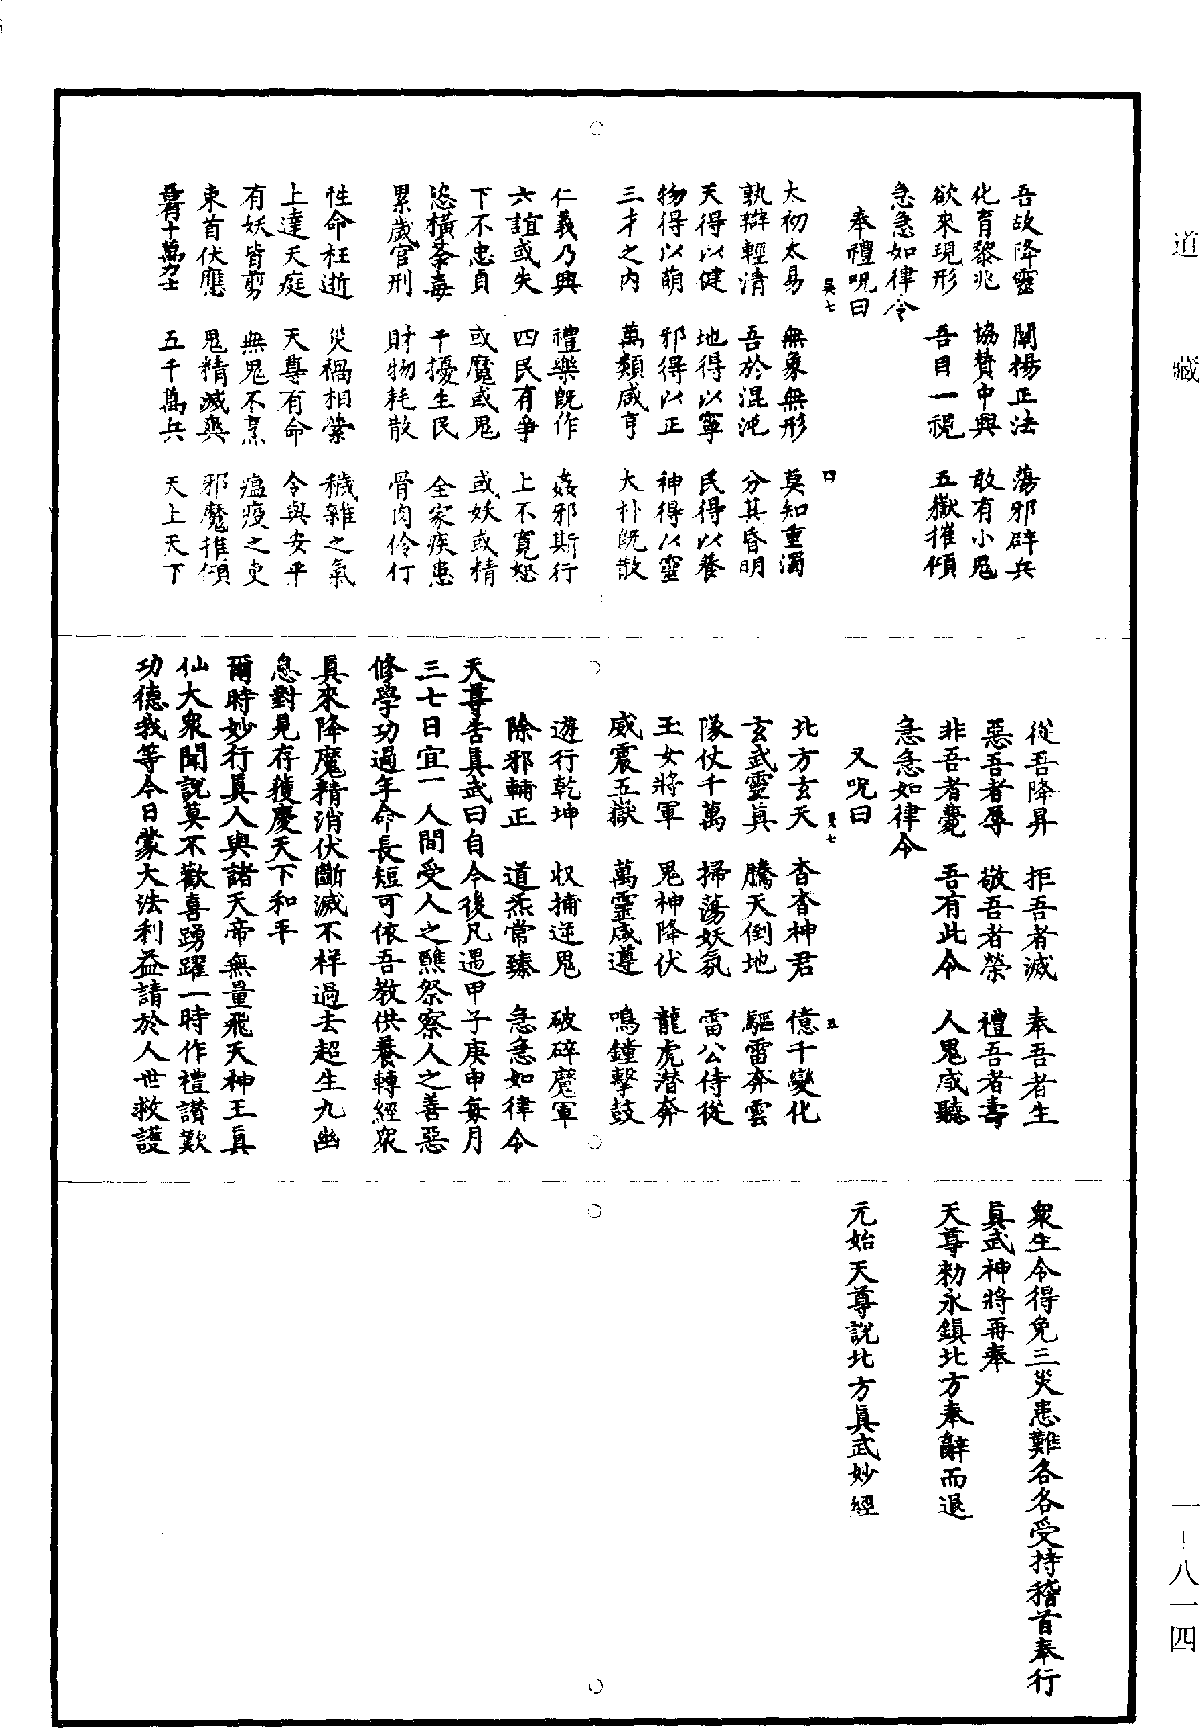 道 藏
吾故降靈 闡揚正法 蕩邪辟兵
化育黎兆 協贊中興 敢有小鬼
欲來現形 吾目一視 五嶽摧傾
急急如律令
奉禮呪曰
太初太易 無象無形 莫知重濁
孰辯輕清 吾於混沌 分其昏明
天得以健 地得以寧 民得以養
物得以萌 邪得以正 神得以靈
三才之內 萬類咸亨 大朴既散
仁義乃興 禮樂既作 姦邪斯行
六誼或失 四民有爭 上不寬恕
下不忠貞 或魔或鬼 或妖或精
恣橫荼毒 干擾生民 全家疾患
累歲官刑 財物耗散 骨肉伶仃
性命枉逝 災禍相縈 穢雜之氣
上達天庭 天尊有命 令與安平
有妖皆剪 無鬼不烹 瘟疫之吏
束首伏應 鬼精滅爽 邪魔摧傾
吾有十萬力士 五千萬兵 天上天下
從吾降昇 拒吾者滅 奉吾者生
惡吾者辱 敬吾者榮 禮吾者壽
非吾者薨 吾有此令 人鬼咸聽
急急如律令
又呪曰
北方玄天 杳杳神君 億千變化
玄武靈真 騰天倒地 驅雷奔雲
隊仗千萬 掃蕩妖氛 雷公侍從
玉女將軍 鬼神降伏 龍虎潛奔
威震五嶽 萬靈咸遵 鳴鐘擊鼓
遊行乾坤 收捕逆鬼 破碎魔軍
除邪輔正 道炁常臻 急急如律令
天尊告真武曰自今後凡遇甲子庚申每月
三七日宜一人間受人之醮祭察人之善惡
修學功過年命長短可依吾教供養轉經眾
真來降魔精消伏斷滅不祥過去超生九幽
息對見存獲慶天下和平
爾時妙行真人與諸天帝無量飛天神王真
仙大眾聞說莫不歡喜踴躍一時作禮讚歎
功德我等今日蒙大法利益請於人世救護
眾生令得免三災患難各各受持稽首奉行
真武神將再奉
天尊勑永鎮北方奉辭而退
元始天尊說北方真武妙經
一－八一四